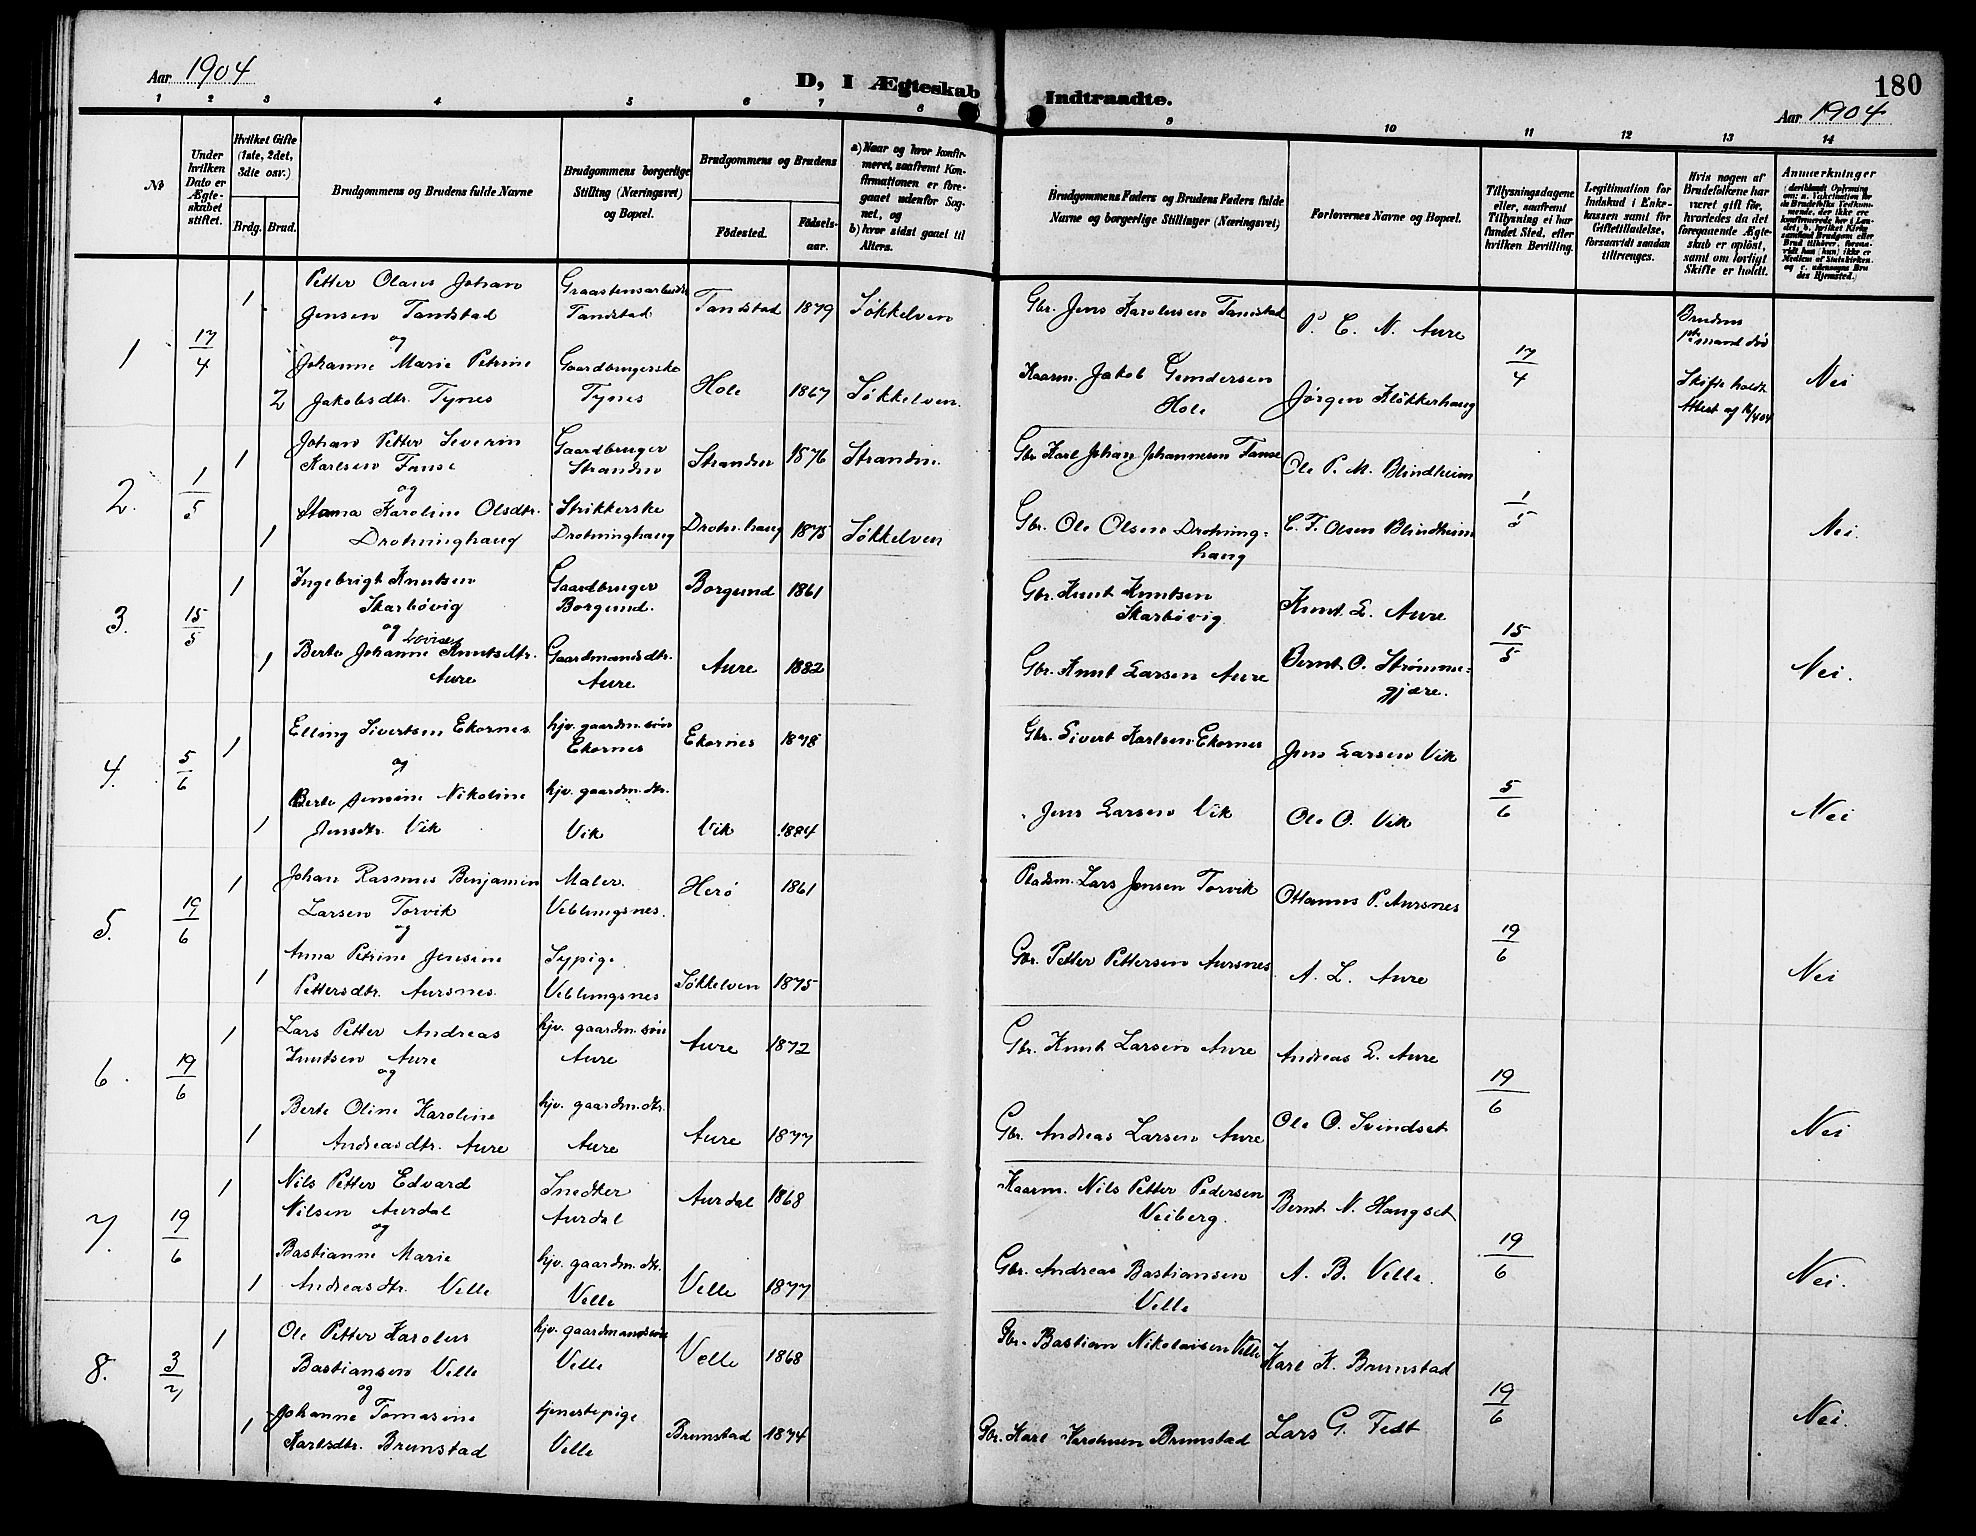 Aar 1904
D, I Ægteskab Indtraadte.
180
Aar 1904
1 2 3 4 5 6 7 8 9 10 11 12 13 14
№
Under hvilken Dato er Ægteskabet stiftet.
Hvilket Gifte (1ste, 2det, 3die osv.)
Brdg. Brud.
Brudgommens og Brudens fulde Navne
Brudgommens borgerlige Stilling (Næringsvei) og Bopæl.
Brudgommens og Brudens
Födested.
Födsels-aar.
a) Naar og hvor konfirmeret, saafremt Konfirmationen er foregaaet udenfor Sognet, og
b) hvor sidst gaaet til Alters.
Brudgommens Faders og Brudens Faders fulde Navne og borgerlige Stillinger (Næringsvei)
Forlovernes Navne og Bopæl.
Tillysningsdagene eller, saafremt Tillysning ei har fundet Sted, efter hvilken Bevilling.
Legitimation for Indskud i Enkekassen samt for Giftetilladelse, forsaavidt saadan tiltrænges.
Hvis nogen af Brudefolkene har været gift för, hvorledes da det foregaaende Ægteskab er oplöst, samt om lovligt Skifte er holdt.
Anmærkninger
1
17/4
1
Petter Olaus Johan
Jensen Tandstad
og
Graastensarbeider
Tandstad
Tandstad 1879 Søkkelven
Gbr. Jens Karolusen Tandstad
P. C. N. Aure
17/4
Brudens
1ste mand død
2
Johanne Marie Petrine
Jakobsdtr. Tynes
Gaardbrugerske
Tynes
Hole 1867 Søkkelven.
Kaarm. Jakob Gundersen
Hole
Jørgen Kløkkerhaug
Skifte holdt.
Nei
2.
1/5
1
Johan Petter Severin
Karlsen Fause
og
Gaardbruger
Stranden
Stranden 1876 Stranden.
Gbr. Karl Johan Johannesen Fause
Ole P. M. Blindheim
1/5
1
Karoline Olsdtr.
Drotninghaug
Strikkerske
Drotninghaug
Drotn.haug 1875 Søkkelven
Gbr. Ole Olsen Drotning-
haug
C. F. Olsen Blindheim
Nei.
3.
15/5
1
Ingebrigt Knutsen
Skarbøvig
og
Gaardbruger
Borgund.
Borgund 1861
Gbr. Knut Knutsen
Skarbøvig
Knut L. Aure
15/5
1
Lovise
Berte Johanne Knutsdtr.
Aure
Gaardmandsdtr.
Aure
Aure 1882
Gbr. Knut Larsen Aure
Bernt O. Strømme-
gjære.
Nei.
4.
5/6
1
Elling Sivertsen Ekornes
og
hjv. gaardm. søn
Ekornes
Ekornes 1878
Gbr. Sivert Karlsen Ekornes
Jens Larsen Vik
5/6
1
Berte Jensine Nikoline
Jensdtr. Vik
hjv. gaardm. dtr.
Vik
Vik 1884
Jens Larsen Vik
Ole O. Vik
Nei
5.
19/6
1
Johan Rasmus Benjamin
Larsen Torvik
og
Maler.
Veblungsnes.
Herø 1861
Pladsm. Lars Jensen Torvik
Ottamus P. Aursnes
19/6
1
Anna Petrine Jensine
Pettersdtr. Aursnes.
Sypige.
Veblungsnes
Søkkelven 1875
Gbr. Petter Pettersen Aursnes
A. L. Aure
Nei
6.
19/6
1
Lars Petter Andreas
Knutsen Aure
og
hjv. gaardm. søn
Aure
Aure 1872
Gbr. Knut Larsen Aure
Andreas L. Aure
19/6
1
Berte Oline Karoline
Andreasdtr. Aure
hjv. gaardm. dtr.
Aure
Aure 1877
Gbr. Andreas Larsen Aure
Ole O. Svindset
Nei
7.
19/6
1
Nils Petter Edvard
Nilsen Aurdal
og
Snedker
Aurdal
Aurdal 1868
Kaarm. Nils Petter Pedersen
Veiberg.
Bernt N. Haugset
19/6
1
Bastianne Marie
Andreasdtr. Velle
hjv. gaardm. dtr.
Velle
Velle 1877
Gbr. Andreas Bastiansen
Velle
A. B. Velle.
Nei.
8.
3/7
1
Ole Petter Karolus
Bastiansen Velle
og
hjv. gaardmandssøn
Velle
Velle 1868
Gbr. Bastian Nikolaisen Velle
Karl K. Brunstad
19/6
1
Johanne Tomasine
Karlsdtr. Brunstad
tjenestepige
Velle
Brunstad 1874
Gbr. Karl Karolusen Brunstad
Lars G. Fedt
Nei.